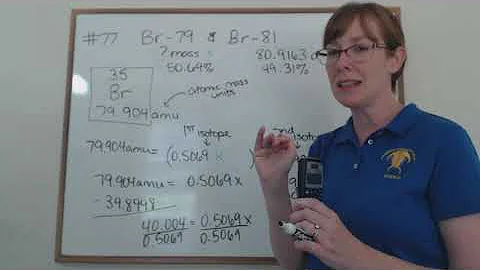 #77 Br-79 & Br-81
? mass 80.9163
50.69% 49.31%
35
Br
79.904 amu
atomic mass
units
1st isotope 2nd isotope
79.904 amu = (0.5069 x )
79.904 amu = 0.5069 x
- 39.8998
40.004 = 0.5069 x
0.5069 0.5069